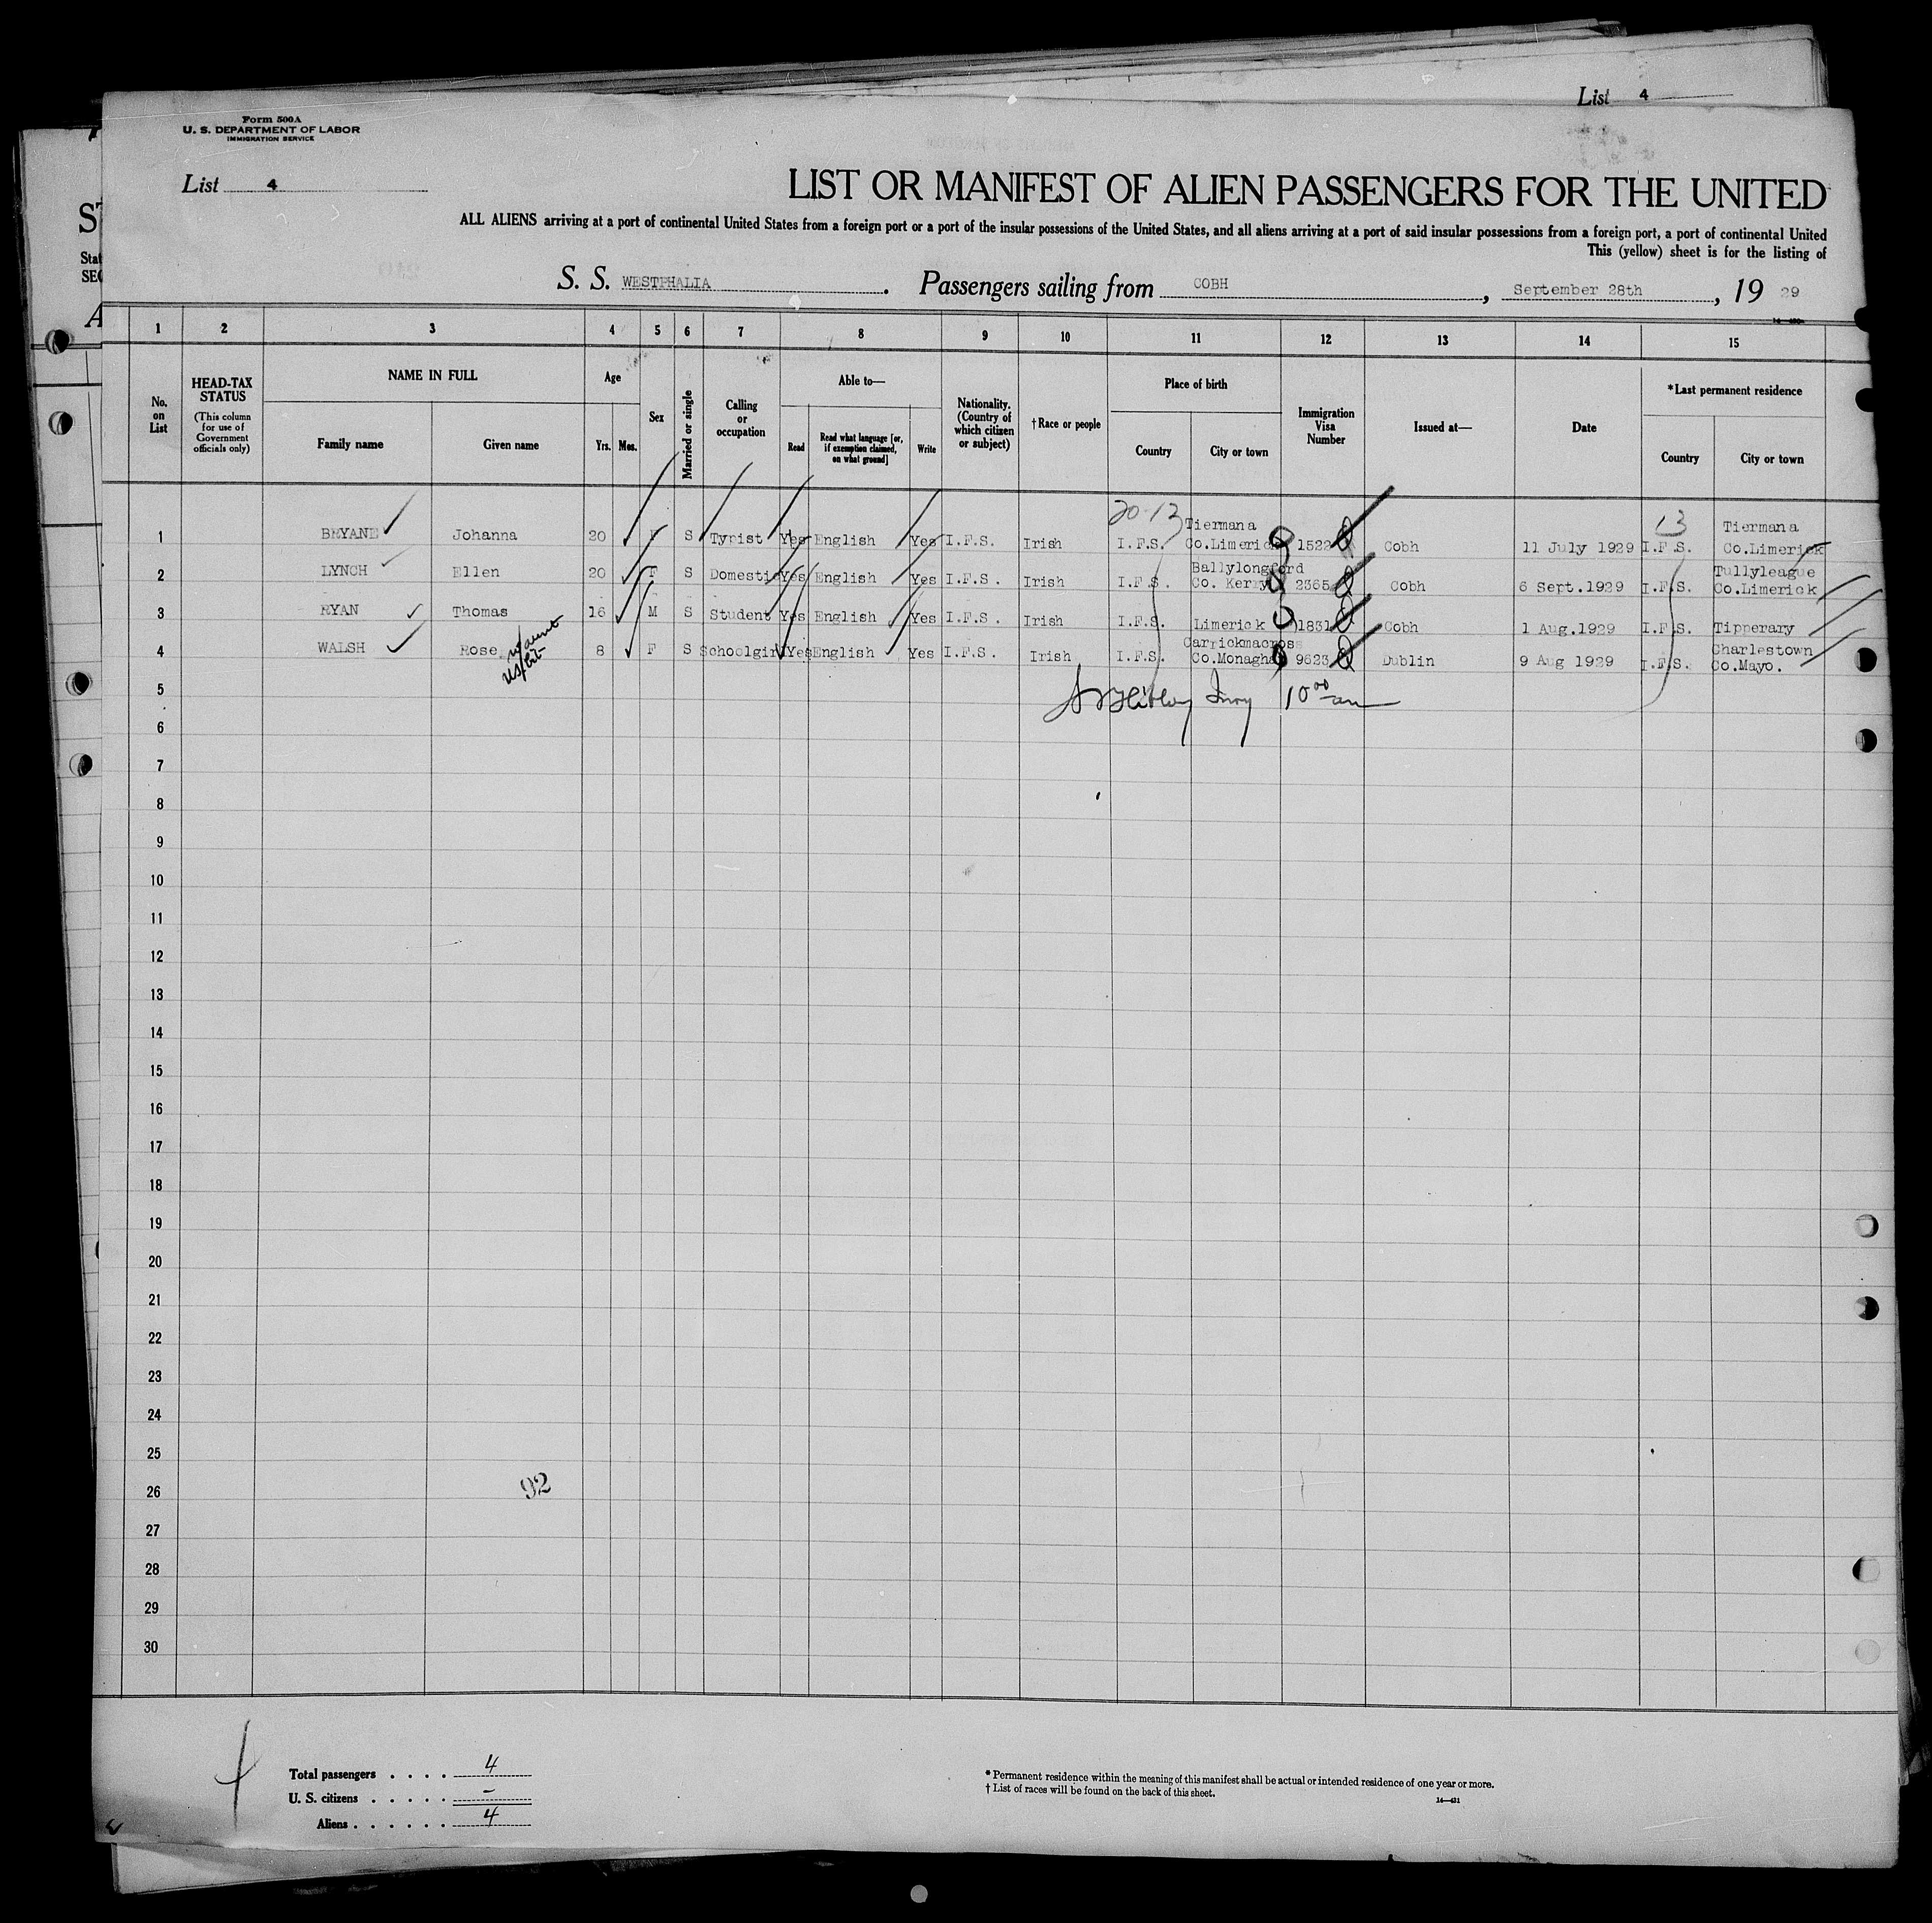 List 4
Form 500A
U. S. DEPARTMENT OF LABOR
IMMIGRATION SERVICE
List 4
LIST OR MANIFEST OF ALIEN PASSENGERS FOR THE UNITED
ALL ALIENS arriving at a port of continental United States from a foreign port or a port of the insular possessions of the United States, and all aliens arriving at a port of said insular possessions from a foreign port, a port of continental United
This (yellow) sheet is for the listing of
S. S. WESTPHALIA. Passengers sailing from COBH, September 28th, 19 29
1 2 3 4 5 6 7 8 9 10 11 12 13 14 15
No. on List
HEAD-TAX STATUS
(This column for use of Government officials only)
NAME IN FULL
Family name Given name
Age
Yrs. Mos.
Sex
Married or single
Calling or occupation
Able to—
Read Read what language [or, if exemption claimed, on what ground] Write
Nationality. (Country of which citizen or subject)
†Race or people
Place of birth
Country City or town
Immigration Visa Number
Issued at—
Date
*Last permanent residence
Country City or town
20-13 13
1 BRYANE Johanna 20 F S Typist Yes English Yes I.F.S. Irish I.F.S. Tiermana Co.Limerick 1522 Cobh 11 July 1929 I.F.S. Tiermana Co.Limerick
2 LYNCH Ellen 20 F S Domestic Yes English Yes I.F.S. Irish I.F.S. Ballylongford Co. Kerry 2365 Cobh 6 Sept.1929 I.F.S. Tullyleague Co.Limerick
3 RYAN Thomas 16 M S Student Yes English Yes I.F.S. Irish I.F.S. Limerick 1831 Cobh 1 Aug.1929 I.F.S. Tipperary
4 WALSH Rose 8 F S Schoolgirl Yes English Yes I.F.S. Irish I.F.S. Carrickmacross Co.Monaghan 9623 Dublin 9 Aug 1929 I.F.S. Charlestown Co.Mayo.
w/aunt
5
10 00 am
6
7
8
9
10
11
12
13
14
15
16
17
18
19
20
21
22
23
24
25
26
92
27
28
29
30
4
Total passengers . . . . 4
U. S. citizens . . . . . –
Aliens . . . . . . 4
* Permanent residence within the meaning of this manifest shall be actual or intended residence of one year or more.
† List of races will be found on the back of this sheet.
14—421